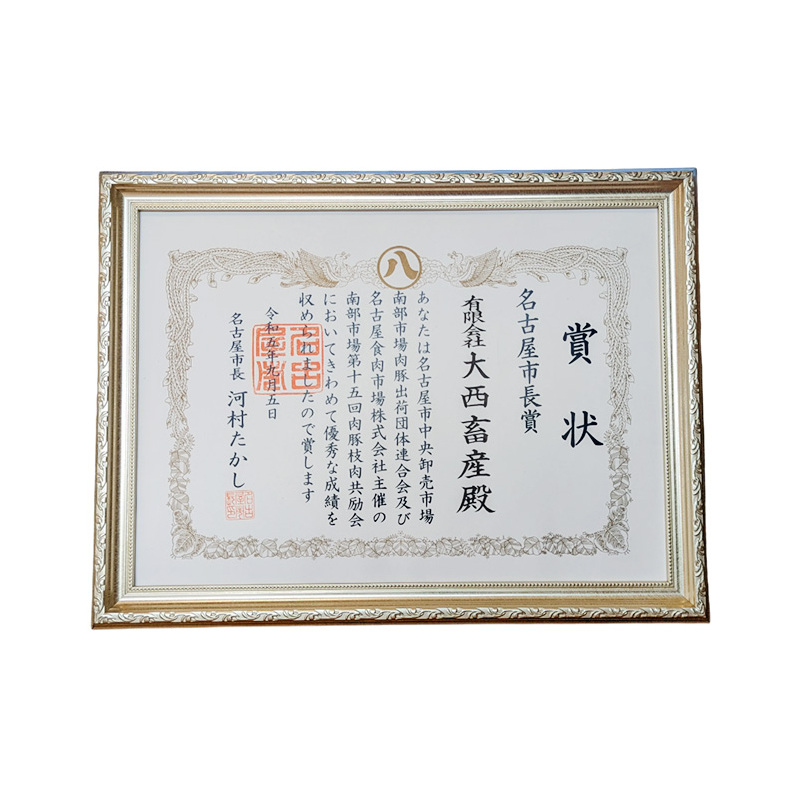 八
賞状
名古屋市長賞
有限会社 大西畜産殿
あなたは名古屋市中央卸売市場
南部市場肉豚出荷団体連合会及び
名古屋食肉市場株式会社主催の
南部市場第十五回肉豚枝肉共励会
においてきわめて優秀な成績を
収められましたので賞します
令和五年九月五日
名古屋市長 河村たかし